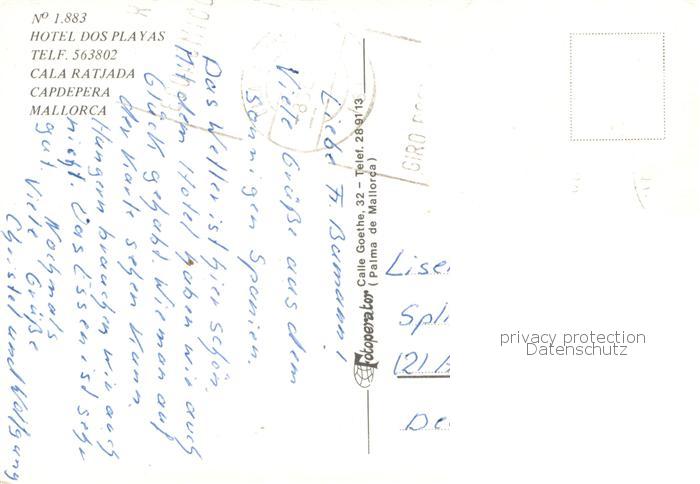 Nº 1.883
HOTEL DOS PLAYAS
TELF. 563802
CALA RATJADA
CAPDEPERA
MALLORCA
Liebe Fr Bamann!
Viele Grüße aus dem
sonnigen Spanien.
Das Wetter ist hier schön.
Mit dem Hotel haben wir auch
Glück gehabt. Wie man auf
der Karte sehen kann.
Hungern brauchen wir auch
nicht. Das Essen ist sehr
gut. Nochmals
Viele Grüße
Christel und Wolfgang
Fotoperator Calle Goethe, 32 - Telef. 28 91 13
( Palma de Mallorca )
GIRO POS
Lise
Spli
De
privacy protection
Datenschutz